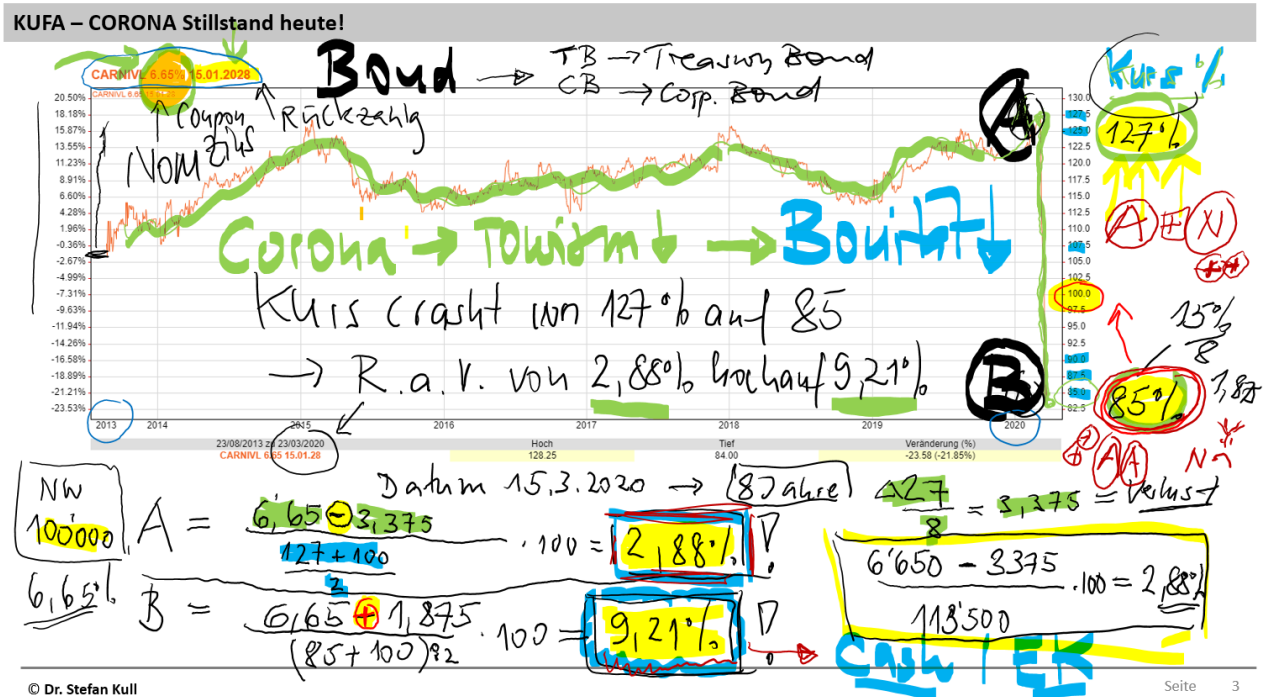 KUFA – CORONA Stillstand heute!
CARNIVL 6.65% 15.01.2028
CARNIVL 6.65 15.01.28
Bond → TB → Treasury Bond
CB → Corp. Bond
Kurs %
127%
↑ Coupon
Nom Zins
Rückzahlg
20.50%
18.18%
15.87%
13.55%
11.23%
8.91%
6.60%
4.28%
1.96%
-0.36%
-2.67%
-4.99%
-7.31%
-9.63%
-11.94%
-14.26%
-16.58%
-18.89%
-21.21%
-23.53%
A
130.0
127.5
125.0
122.5
120.0
117.5
115.0
112.5
110.0
107.5
105.0
102.5
100.0
97.5
95.0
92.5
90.0
87.5
85.0
82.5
Corona → Tourism ↓ → Bonität ↓
Kurs crasht von 127% auf 85
→ R.a.V. von 2,88% hoch auf 9,21%
B
A + N
15%
8
1,875
85%
2013 2014 2015 2016 2017 2018 2019 2020
23/08/2013 zu 23/03/2020 Hoch Tief Veränderung (%)
CARNIVL 6.65 15.01.28 128.25 84.00 -23.58 (-21.85%)
NW
100'000
6,65%
Datum 15.3.2020 → 8 Jahre
27
8
= 3,375 = Verlust
A = 6,65 – 3,375
127 + 100
2
· 100 = 2,88% !
B = 6,65 + 1,875
(85 + 100) : 2
· 100 = 9,21% !
6'650 – 3375
113'500
· 100 = 2,88%
Cash | EK
© Dr. Stefan Kull
Seite 3